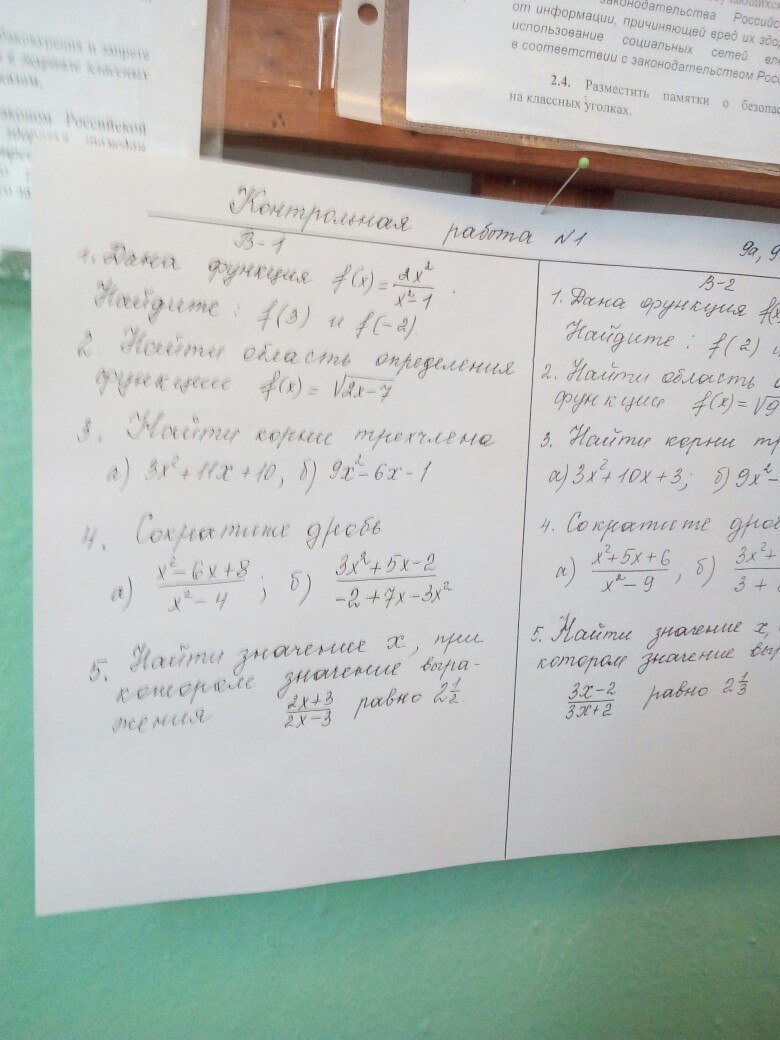 законодательства Российс
от информации, причиняющей вред их здо
использование социальных сетей вле
в соответствии с законодательством Рос
2.4. Разместить памятки о безопас
на классных уголках.
и запрете
классных
Российской
Контрольная работа N1
9а, 9
В-1
1. Дана функция f(x)=2x²/x²-1.
Найдите: f(3) и f(-2).
2. Найти область определения
функции f(x)=√2x-7
3. Найти корни трехчлена
а) 3x²+11x+10, б) 9x²-6x-1
4. Сократите дробь
а) x²-6x+8/x²-4; б) 3x²+5x-2/-2+7x-3x²
5. Найти значение x, при
котором значение выра-
жения 2x+3/2x-3 равно 2 1/2.
В-2
1. Дана функция f(x
Найдите: f(2) и
2. Найти область о
функции f(x)=√9
3. Найти корни тр
а) 3x²+10x+3; б) 9x²-
4. Сократите дроб
а) x²+5x+6/x²-9, б) 3x²+/3+
5. Найти значение x,
котором значение выр
3x-2/3x+2 равно 2 1/3